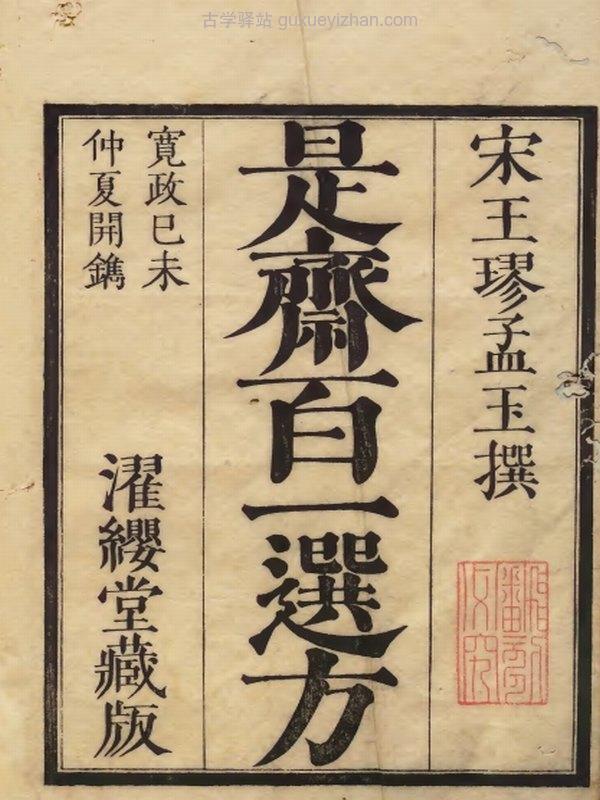 古学驿站 guxueyizhan.com
宋王璆孟玉撰
是齋百一選方
寛政己未
仲夏開鐫
濯纓堂藏版